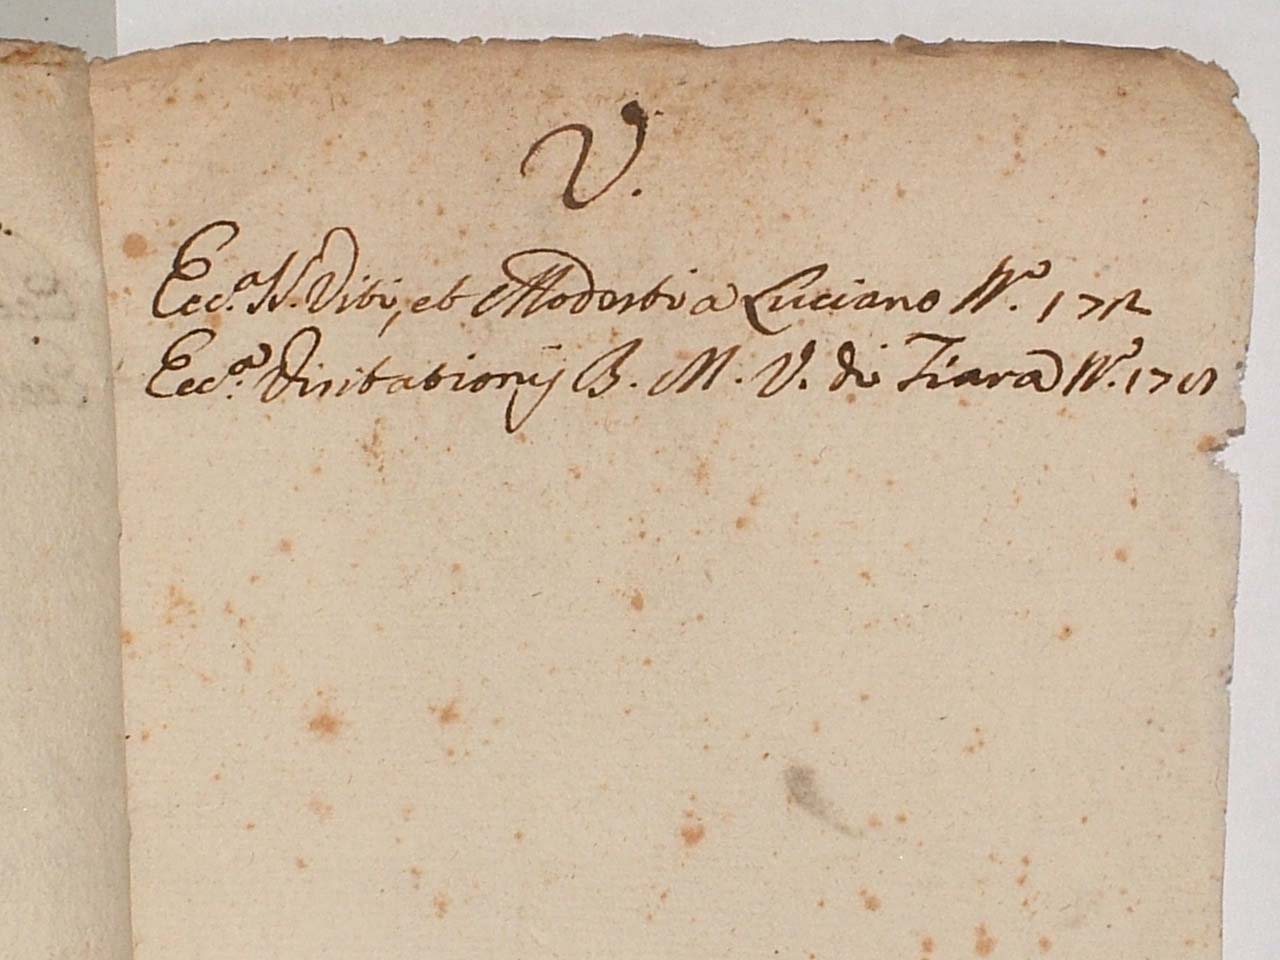 V.
Ecc.a SS. Viti, et Modesti a Luciano N.o 1712
Ecc.a Visitationij B. M. V. di Tiara N.o